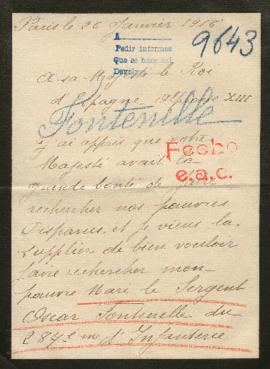 Paris le 26 Janvier 1916
9643
A
Pedir informes
Que se haga ed
Devolv
A sa Majesté le Roi
d'Espagne Alphonse XIII
Fontenille
J'ai appris que votre
Majesté avait la
grande bonté de faire
Fecho
e.a.c.
rechercher nos pauvres
disparus et je viens la
supplier de bien vouloir
faire rechercher mon
pauvre Mari le Sergent
Oscar Fontenille du
287e m d'Infanterie